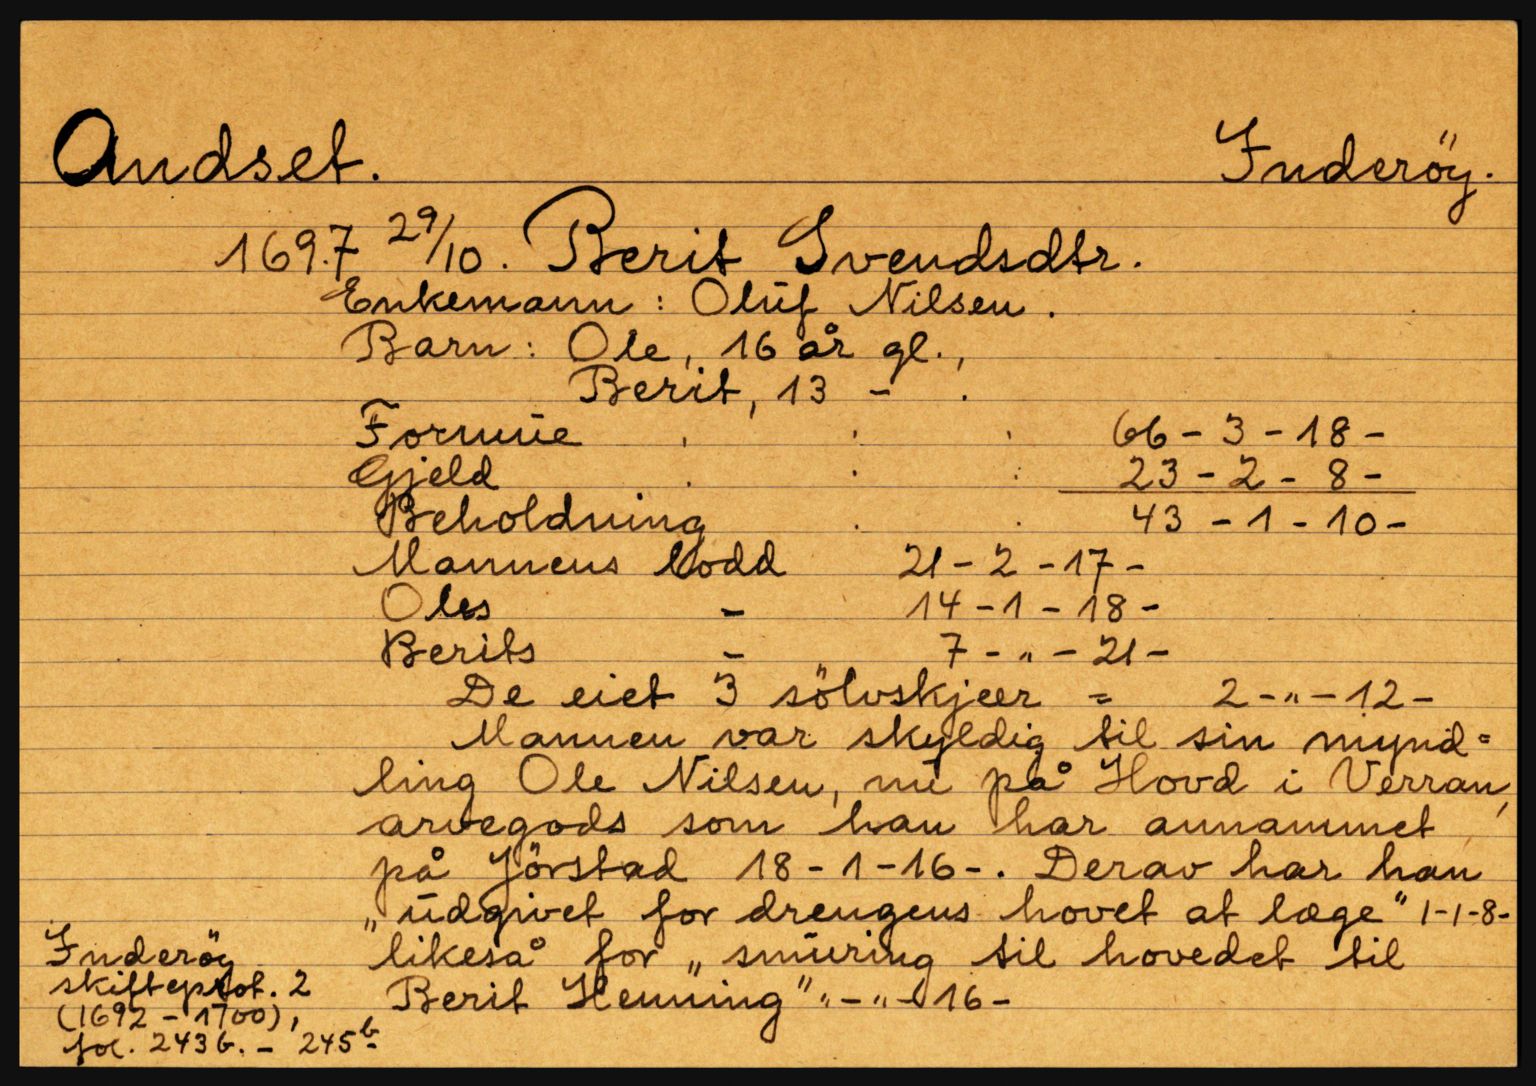 Andset. Inderöy.
1697 29/10. Berit Svendsdtr.
Enkemann: Oluf Nilsen.
Barn: Ole, 16 år gl.,
Berit, 13 - .
Formue . . . 66 - 3 - 18 -
Gjeld . . . 23 - 2 - 8 -
Beholdning . . 43 - 1 - 10 -
Mannens lodd 21 - 2 - 17 -
Oles - 14 - 1 - 18 -
Berits - 7 - " - 21 -
De eiet 3 sölvskjeer = 2 - " - 12 -
Mannen var skyldig til sin mynd=
ling Ole Nilsen, nu på Hovd i Verran,
arvegods som han har annammet
på Jörstad 18 - 1 - 16 - . Derav har han
„udgivet for drengens hovet at læge" 1-1-8-
likeså for „smuring til hovedet til
Berit Henning" " - " - 16 -
Inderöy
skifteprot. 2
(1692 - 1700),
fol. 243 b. - 245 b